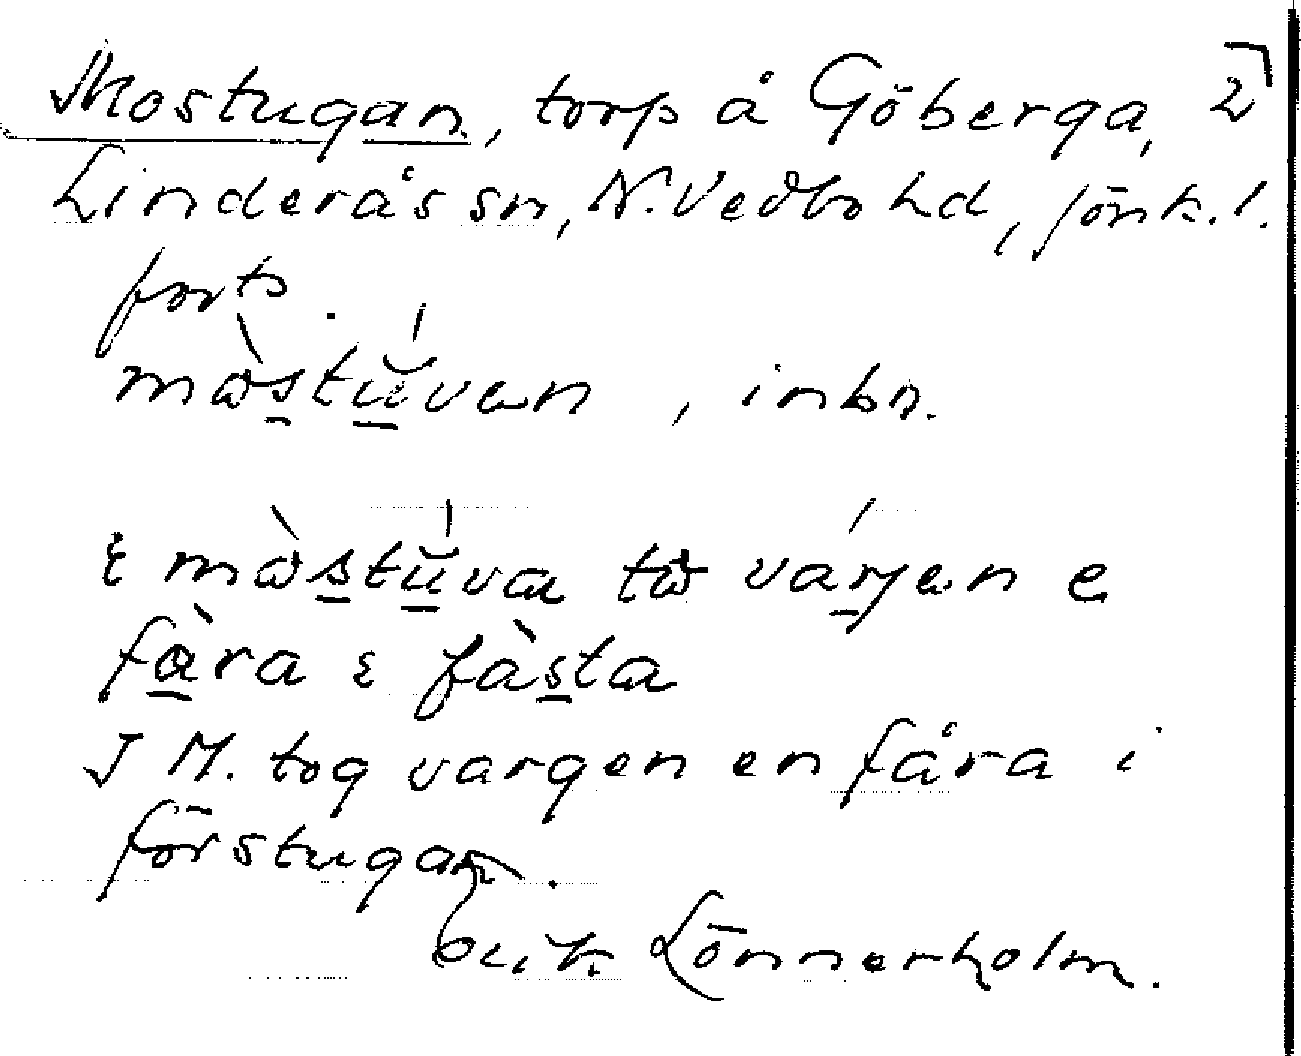 Mostugan, torp å Göberga, 2
Linderås sn, N. Vedbo hd, Jönk. l.
forts.
mòstŭ́van, inbn.
tɷ e
fàra fàsta
I M. tog vargen en fåra i
förstugan.
Erik Lönnerholm.